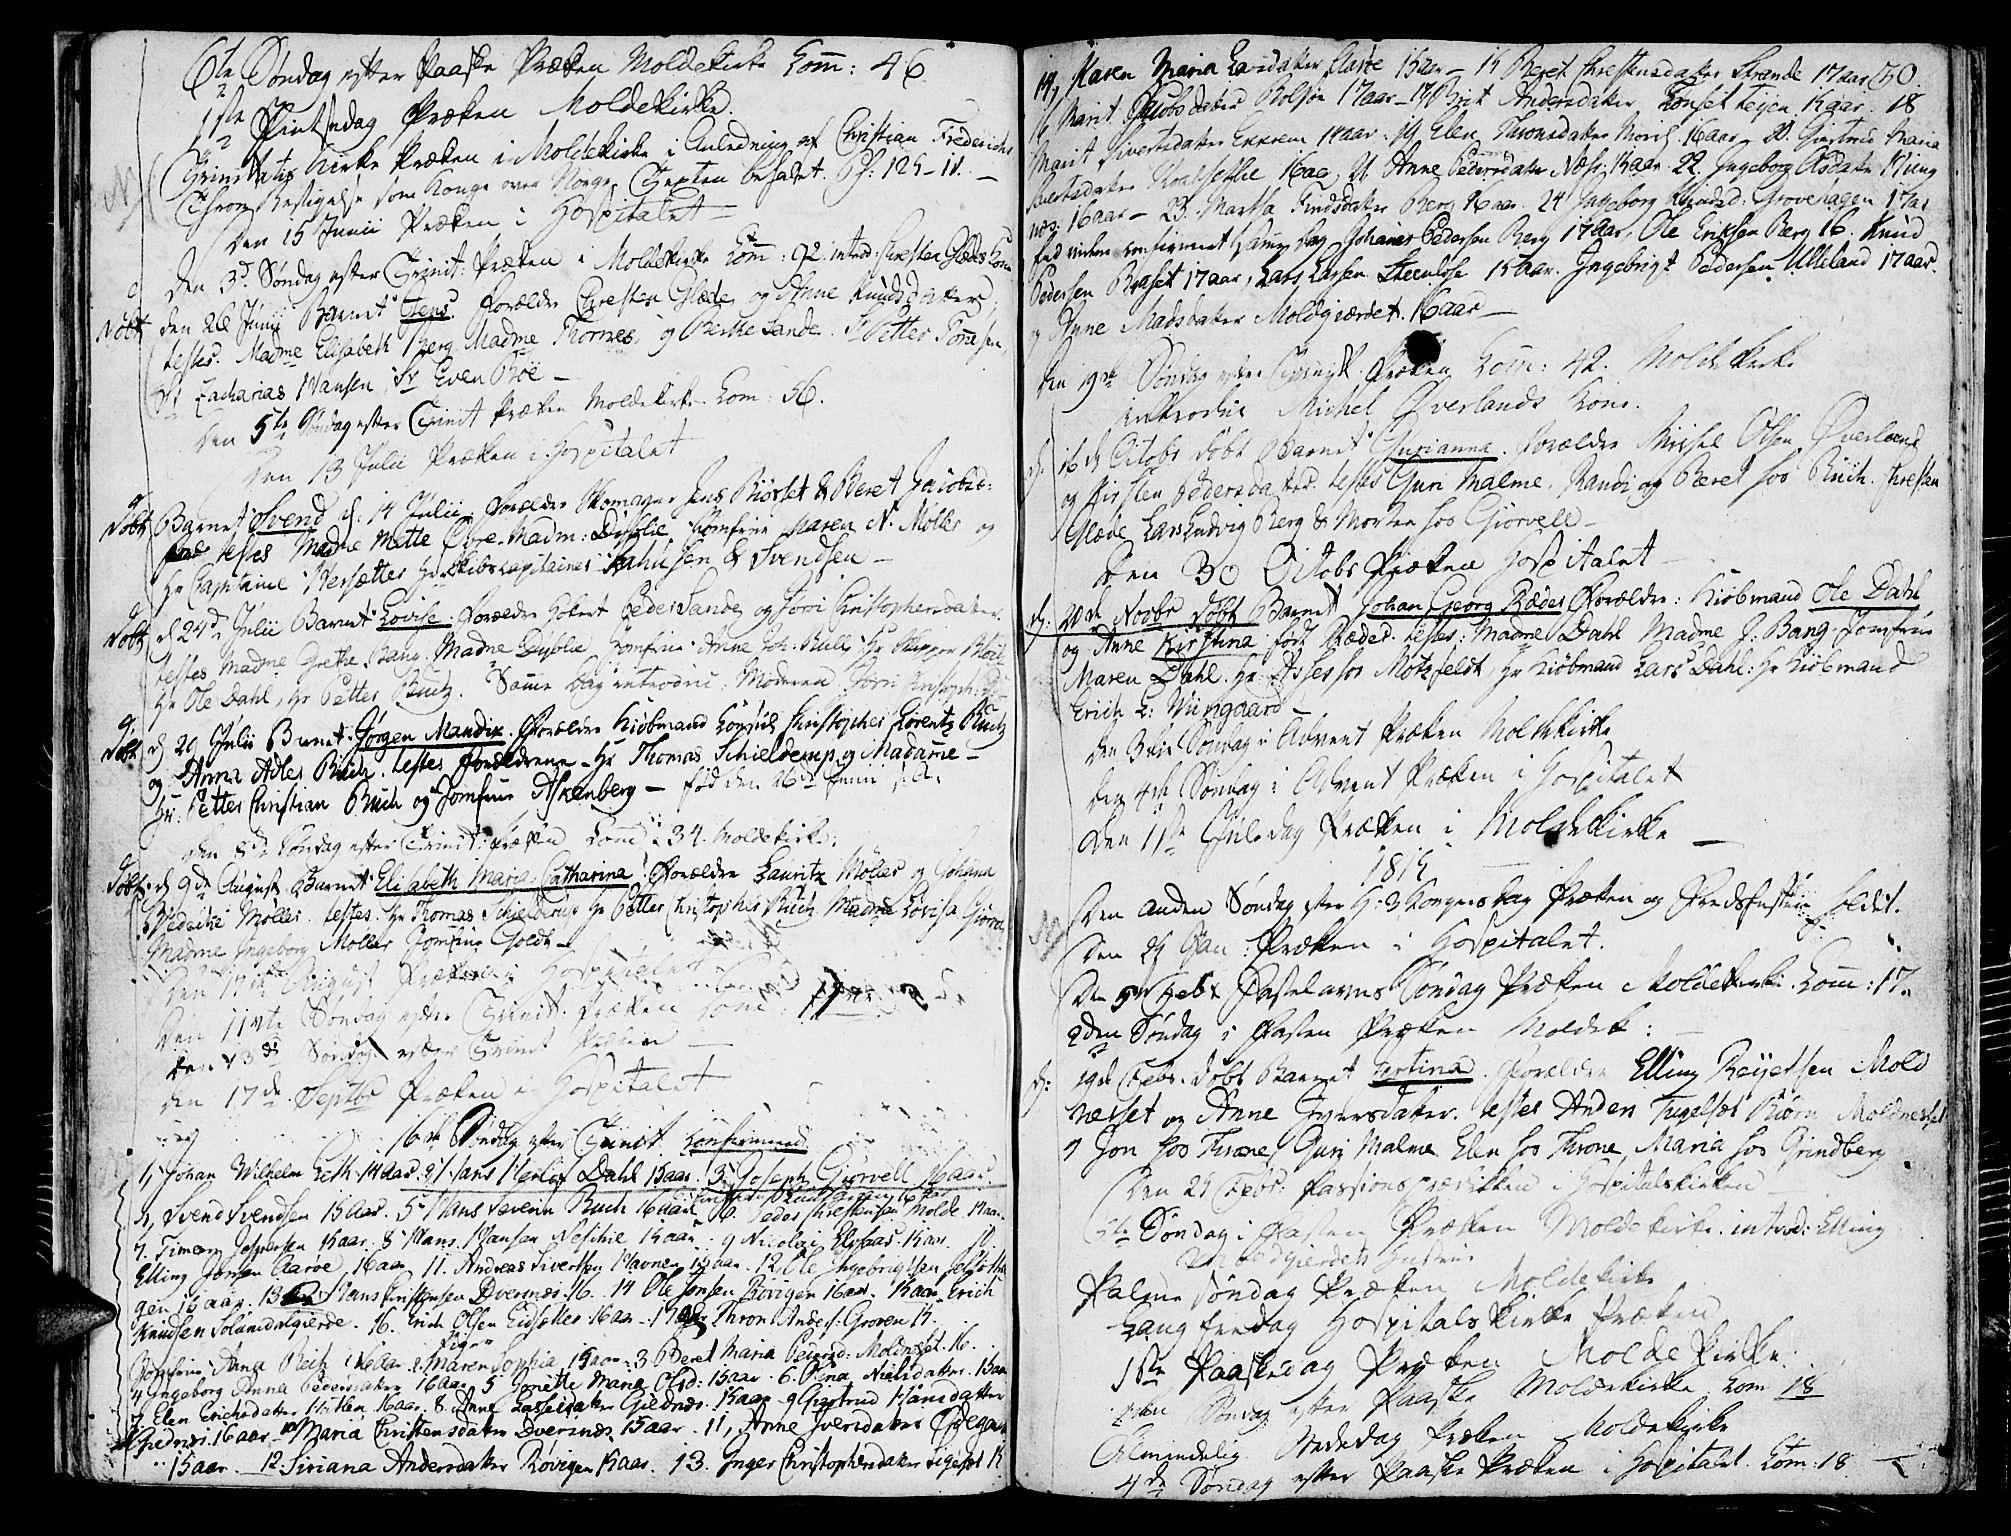 6te Søndag efter Paaske Præken Moldekirke Com: 46
1ste Pintsedag Præken Moldekirke.
Trinitatis Kirke Præken i Moldekirke i Anledning af Christian Frederichs
Thron Bestigelse som Konge over Norge Texten befalet Ps: 125-11. —
den 15 Junii Præken i Hospitalet —
den 3de Søndag efter Trinit: Præken i Moldekirke Com: 92. introd: Christen Glædes Kone
døbt den 26 Junij Barnet Jens. Forældre Christen Glæde, og Anne Knudsdatter,
testes. Madme Elisabeth Berg Madme Thornes, og Berthe Sande. Sr Petter Tønnesen,
Sr Zacharias Hansen, Sr Even Böe —
den 5te Søndag efter Trinit Præken Moldekirke Com: 56.
den 13 Julii Præken i Hospitalet
døbt Barnet Svend d: 14 Julii, Forældre Skomager Jens Biörset & Beret Jacobsd:
testes Madme Mette Øvre. Madm: Dyblie. Jomfrue Maren N. Möller og
Hr Capitaine Hersætter Hr Skibscapitainer & Svendsen —
døbt d 24de Julii Barnet Lovise. Forældre Hobert Peder Sande, og Jören Christophersdatter
testes Madme Grethe Bang. Madme Dyblie Jomfrue Anne
Hr Ole Dahl, Hr Petter Buch. Samme Dag introduc: Moderen
døbt d 29 Julii Barnet Jørgen Mandix. Forældre Kiöbmand Christopher Lorentz Buch
og Anna Adler Buch. testes Forældrene. Hr Thomas Schielderup og Madame
Hr: Petter Christian Buch og Jomfrue Askenberg — fød den 26de
den 8de Søndag efter Trinit: Præken Com: 34. Moldekirke:
døbt d 9de August Barnet Elisabeth Maria Catharina. Forældre Lauritz Möller og Johana
Möller. testes. Hr Thomas Schielderup Hr Petter Christopher Buch. Madme Lovisa
Madme Ingeborg Möller Jomfrue
den 17de August Præken i Hospitalet
den 11te Søndag efter Trinit. Præken
den 13de Søndag efter Trinit Præken —
den 17de Septbr Præken i Hospitalet
16de Søndag efter Trinit Confirmered
1, Johan Wilhelm Leth. 14 aar. 2, Hans Herlof Dahl 15 aar. 3, Joseph Giörvell 16 aar.
4, Svend Svendsen 15 aar. 5 Hans Severin Buch 16 aar. 6. Peder Christensen Molde. 14 aar.
7. Jespersen 15 aar. 8 Hans Hansen 15 aar 9 Nicolai Elisæus 15 aar. 10.
Elling Jonsen Aaröe, 16 aar 11. Andreas Sivertsen Havnen 15 aar. 12. Ole Ingebrigtsen
gen 15 aar. 13 Hans Christensen Dversnæs. 16. 14 Ole Jonsen Rövigen 16 aar. 15 Erich
Knudsen Solemdalgierde. 16. Erich Olsen Eidsetter 16 aar. 17 Thron Anders: Groven 17.
Piger
Jomfrue Anna 16 aar. 2. Maren Sophia 15 aar. 3 Beret Maria Pedersd: Moldnæset. 16.
4 Ingeborg Anna Pedersdatter 16 aar. 5 Jonette Maria Olsd: 15 aar. 6. Olena Nielsdatter. 15 aar
7 Elen Erichsdatter 16 aar. 8. Anne Lassesdatter Giednæs. 15 aar 9 Giærtrud Hansdatter
Giednæs. 16 aar 10 Maria Christensdatter Dversnæs. 15 aar. 11, Anne Iversdatter Ödegaard
15 aar. 12 Siriana Andersdatter Rövigen 15 aar. 13. Inger Christophersdatter 15
14, Karen Maria Larsdatter 15 aar — 15 Beret Christensdatter Strande 17 aar 30.
16 Marit Jacobsdatter Bolsön 17 aar — 17 Brit Andersdatter Lönset 15 aar. 18
Marit Sivertsdatter Ekrem 14 aar. 19 Elen Thronsdatter 16 aar. 20. Giertrud Maria
16 aar, 21 Anne Pedersdatter 15 aar. 22. Ingeborg
næs. 16 aar — 23. Martha Knudsdatter Berg 16 aar. 24 Ingeborg Knudsd: Grovehagen 17 aar
confirmeret Samme Dag Johannes Pedersen Berg 17 aar, Ole Eriksen Berg 16. Knud
Pedersen 17 aar, Lars Larsen 15 aar. Ingebrigt Pedersen Ulleland 17 aar.
og Anne Madsdatter Moldgiærdet. 16 aar —
den 19de Søndag efter Trinit Præken Com: 42. Moldekirke
introduc Michel Överlands Kone.
d: 16 d: Octobr døbt Barnet Gurianna. Forældre Michel Olsen Överland
og Kirsten Pedersdatter. testes Guri Malme, Randi og Beret hos Buch. Christen
Glæde Lars Ludvig Berg & Morten hos Giörvell —
den 30 Octobr Præken Hospitalet —
d: 20de Novbr døbt Barnet Johan Georg Ræder Forældre: Kiöbmand Ole Dahl
og Anne Kirstina født Ræder. testes: Madme Dahl Madme J: Bang. Jomfrue
Maren Dahl. Hr Assessor Motzfeldt, Hr Kiöbmand Lars Dahl. Hr Kiöbmand
Erich L:
den 3die Søndag i Advent Præken Moldekirke
den 4de Søndag i Advent Præken i Hospitalet
den 1ste Juledag Præken i Moldekirke —
1815
den anden Søndag efter H: 3 Kongersdag Præken og Fredsfesten holdet.
den 29 Jan: Præken i Hospitalet.
den 5te Febr Fastelavns Søndag Præken Moldekirke. Com: 17.
2den Søndag i Fasten Præken Moldek: —
d: 19de Febr. døbt Barnet Forældre Elling Reyersen Mold
næsset og Anne Iversdatter. testes Anders Biörn Moldnæsset
og Jon hos Throne, Guri Malme Elen hos Throne, Maria hos Grindberg
Den 25 Febr: Passions Prædikken i Hospitalskirken —
Søndag i Fasten Præken Moldekirke. introd: Elling
Moldgierdets Hustrue
Palme Søndag Præken Moldekirke
Langfredag Hospitals Kirke Præken
1ste Paaskedag Præken Moldekirke.
Søndag efter Paaske Moldekirke Com 18
Almindelig Bededag Præken Moldekirke
4de Søndag efter Paaske Præken i Hospitalet. Com: 18 —